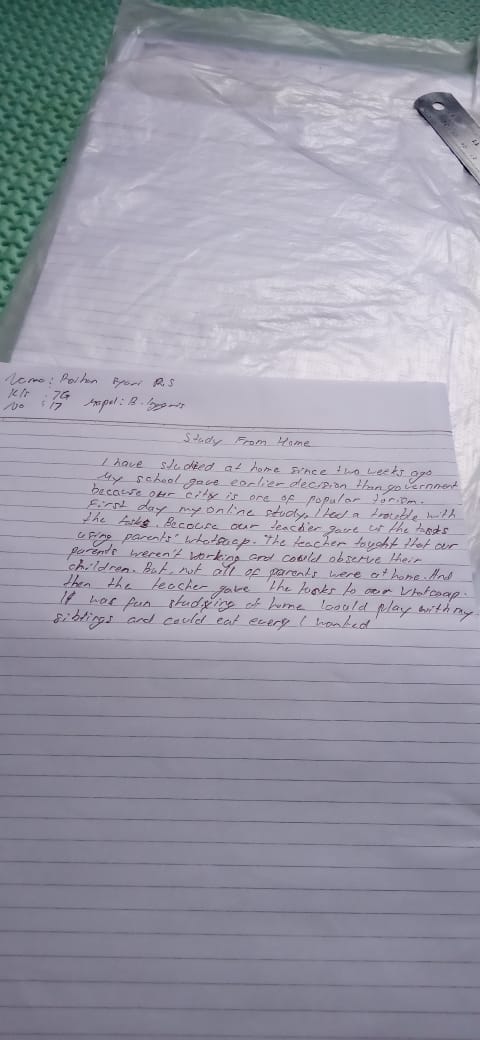 Nama :
Kls : 7G
No : 17 Mapel : B. Inggris
Study From Home
I have studied at home since two weeks ago
My school gave earlier decision than government
because our city is one of popular torism.
First day my online study, I feel a trouble with
the tasks. Because our teacher gave us the tasks
using parents' whatsaap. The teacher tought that our
parents weren't working and could observe their
children. But not all of parents were at home. And
then the teacher gave the tasks to our
It was fun studying at home I could play with my
siblings and could eat every I wanted